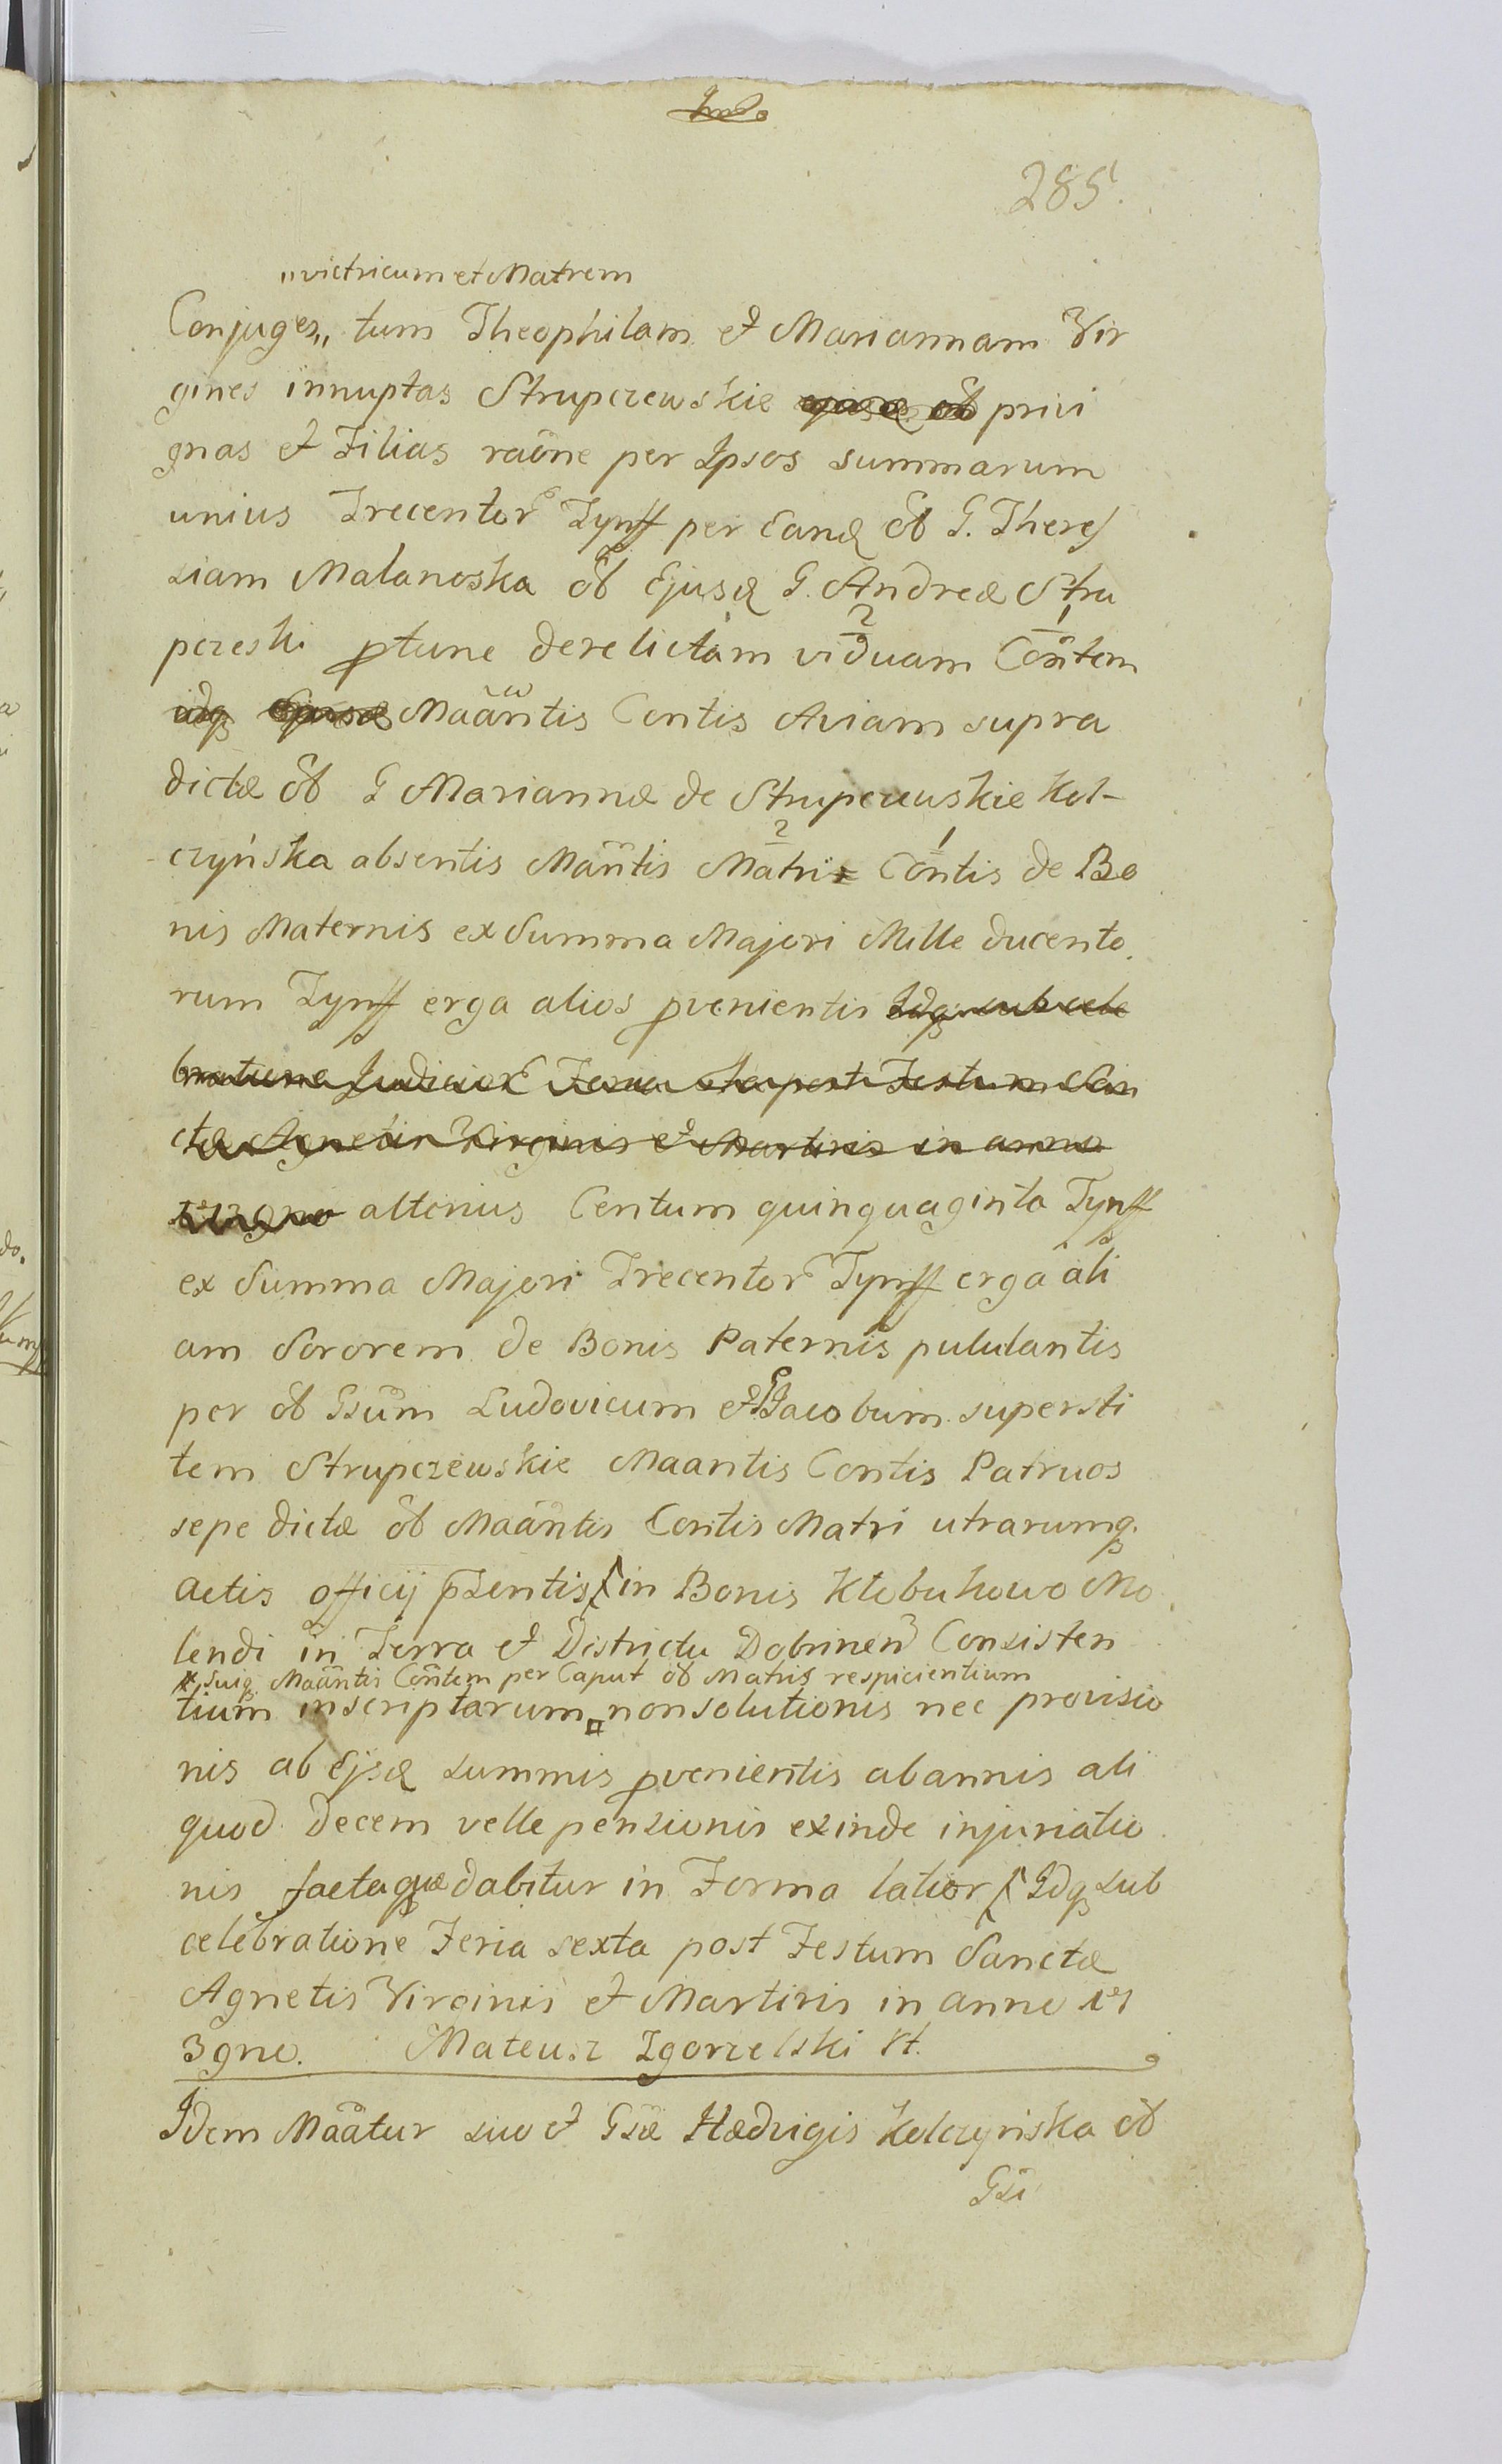 285.
„victricum et Matrem
Conjuges„ tum Theophilam et Mariannam Vir
gines innuptas Strupczewskie privi
gnas et Filias raõne per Ipsos summarum
unius Trecentor Tynff per Eand ol̃ G. Theres
siam Malanoska ol̃ Ejusd G. Andreæ Stru
pczeski ptunc derelictam viduam Cõntem
idq Ejusd Maãntis Contis Aviam supra
dictæ ol̃ G Mariannæ de Strupczewskie Kol-
czyńska absentis Mãntis Matri Cõntis de Bo
nis Maternis ex Summa Majori Mille ducento
rum Tynff erga alios pvenientis Idq sub cele
bratione Judicior Feria sta post Festum San
ctæ Agnetis Virginis et Martiris in anno
alterius Centum quinquaginta Tynff
ex Summa Majori Trecentor Tynff erga ali
am Sororem de Bonis Paternis pululantis
per ol̃ Gsum Ludovicum et G Jacobum supersti
tem Strupczewskie Maantis Contis Patruos
sepe dictæ ol̃ Maãntis Contis Matri utrarumq
actis officij pzentis in Bonis Kłobukowo Mo
lendi in Terra et Districtu Dobrinen Consisten
suiq Maãntis Cõntem per Caput ol̃ Matris respicientium
tium inscriptarum nonsolutionis nec provisio
nis ab Ejsd summis pvenientis ab annis ali
quod Decem velle pensionis exinde injuriatio
nis factaquæ dabitur in Forma latior Idq sub
celebratione Feria sexta post Festum Sanctæ
Agnetis Virginis et Martiris in anno 17
3gno. Mateusz Zgorzelski
Idem Maãtur suo et Gsæ Hædvigis Kolczyńska ol̃
Gsi